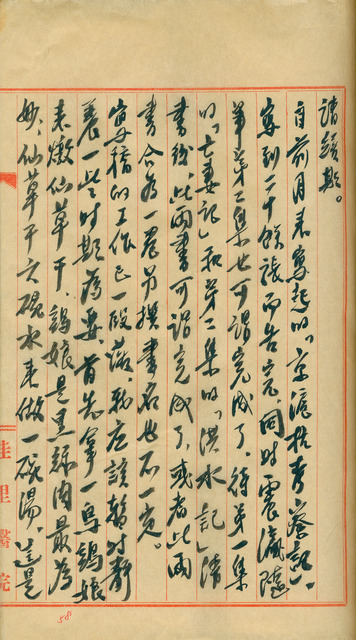 自前月來寫起的「京滬杭青
寫到二十餘張而告完、同時震瀛隨
筆第二集也可謂完成了、待第一集
的「亡妻記」和第二集的「洪水記」清
書後、此兩書可謂完成了、或者此兩
書合為一卷另撰書名也不一定。
寫稿的工作已一段落、我應該暫時靜
養一些時期為要、首先拿一烏鷄娘
來燉仙草干、鷄娘是黑綠肉最為
妙、仙草干六碗水來做一碗湯、這是
佳里醫院
58